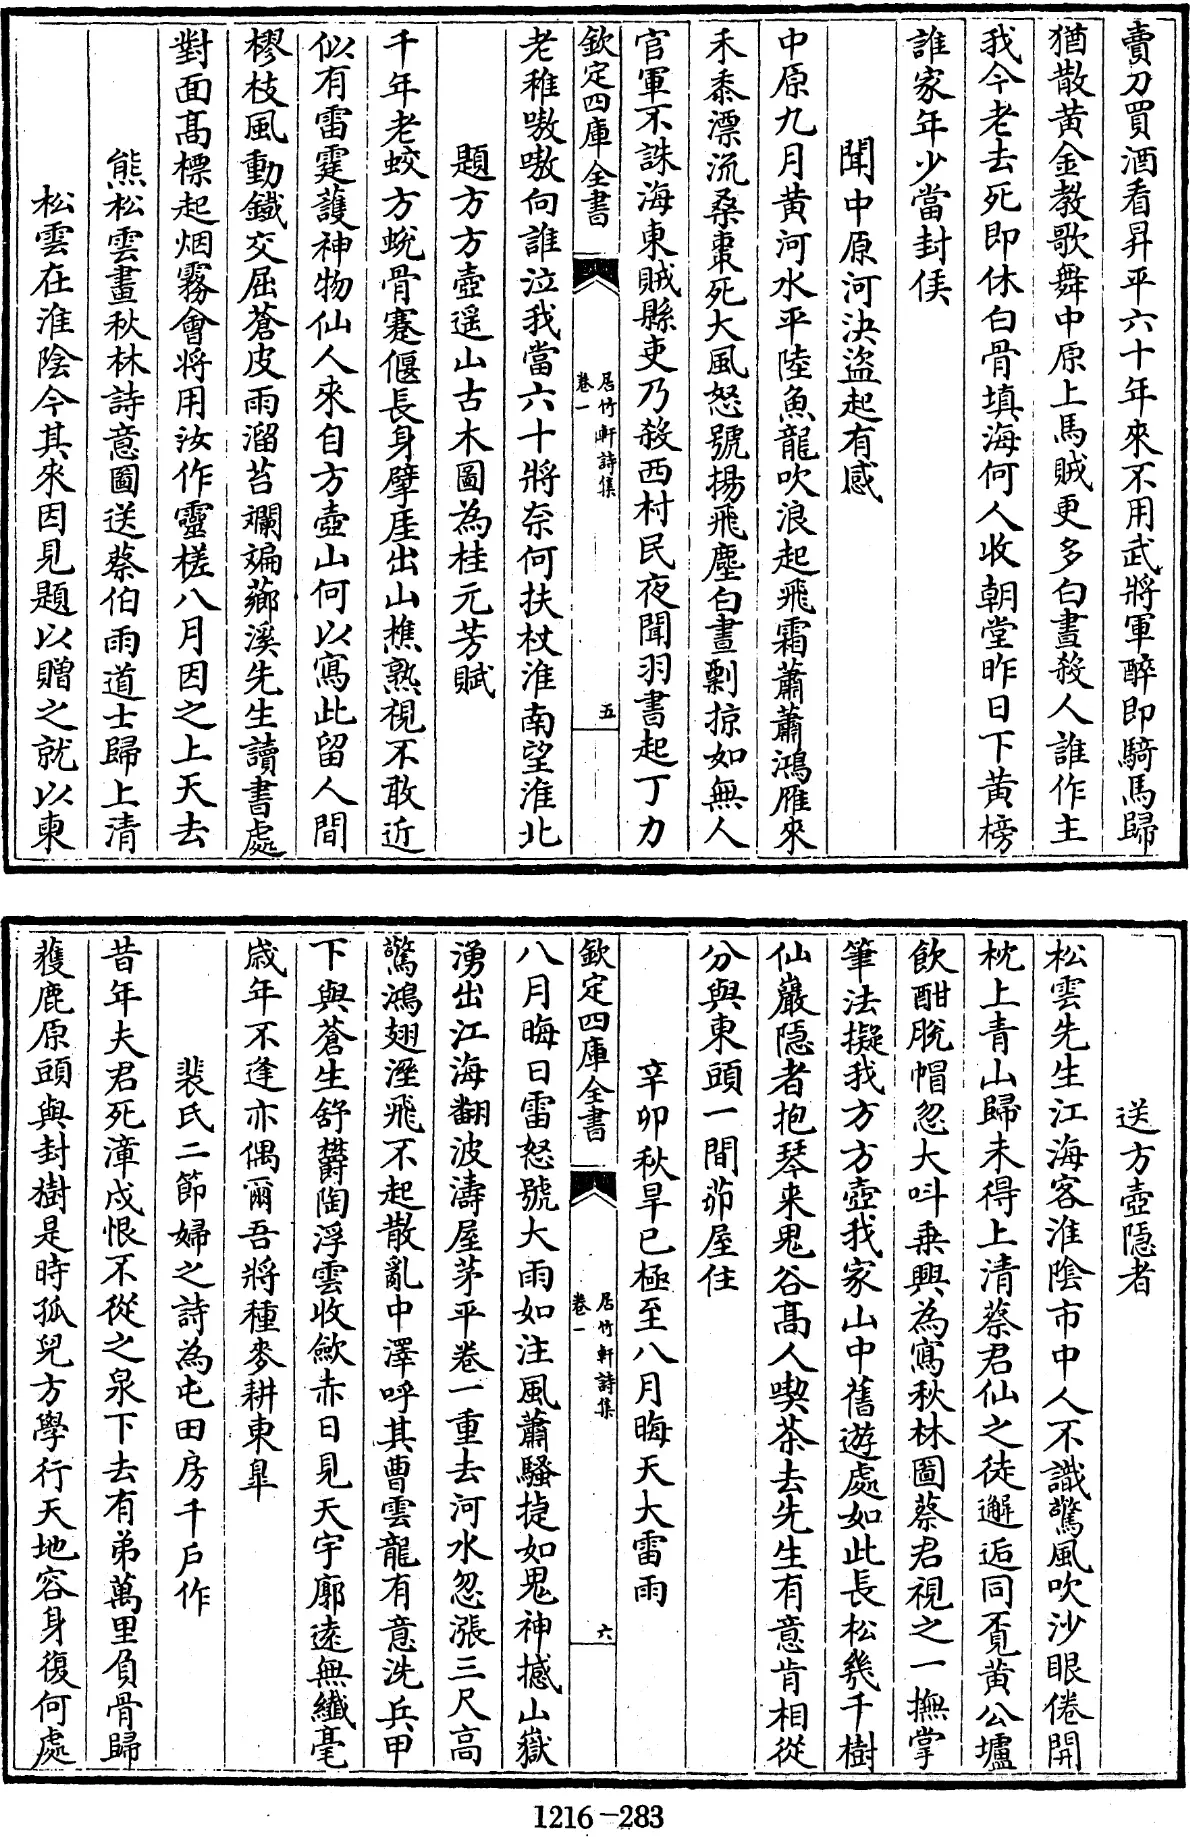 賣刀買酒看昇平六十年來不用武將軍醉即騎馬歸
猶散黄金教歌舞中原上馬賊更多白晝殺人誰作主
我今老去死即休白骨填海何人收朝堂昨日下黄榜
誰家年少當封侯
聞中原河決盜起有感
中原九月黄河水平陸魚龍吹浪起飛霜蕭蕭鴻雁來
禾黍漂流桑棗死大風怒號揚飛塵白晝剽掠如無人
官軍不誅海東賊縣吏乃殺西村民夜聞羽書起丁力
欽定四庫全書
居竹軒詩集
卷一
五
老稚嗷嗷向誰泣我當六十將奈何扶杖淮南望淮北
題方方壺遥山古木圖為桂元芳賦
千年老蛟方蛻骨蹇偃長身擘厓出山樵熟視不敢近
似有雷霆護神物仙人來自方壺山何以寫此留人間
樛枝風動鐵交屈蒼皮雨溜苔斕斒薌溪先生讀書處
對面髙標起烟霧會將用汝作靈槎八月因之上天去
熊松雲畫秋林詩意圖送蔡伯雨道士歸上清
松雲在淮隂今其來因見題以贈之就以柬
送方壺隠者
松雲先生江海客淮隂市中人不識驚風吹沙眼倦開
枕上青山歸未得上清蔡君仙之徒邂逅同覔黄公壚
飲酣脱帽忽大呌乗興為寫秋林圖蔡君視之一撫掌
筆法擬我方方壺我家山中舊遊處如此長松幾千樹
仙巖隠者抱琴来鬼谷髙人喫茶去先生有意肯相從
分與東頭一間茆屋住
辛卯秋旱已極至八月晦天大雷雨
欽定四庫全書
居竹軒詩集
卷一
六
八月晦日雷怒號大雨如注風蕭騷捷如鬼神撼山嶽
湧出江海翻波濤屋茅平卷一重去河水忽漲三尺高
驚鴻翅溼飛不起散亂中澤呼其曹雲龍有意洗兵甲
下與蒼生舒欝陶浮雲收歛赤日見天宇廓逺無纖毫
歲年不逢亦偶爾吾將種麥耕東臯
裴氏二節婦之詩為屯田房千戶作
昔年夫君死漳戍恨不從之泉下去有弟萬里負骨歸
獲鹿原頭與封樹是時孤兒方學行天地容身復何處
1216-283